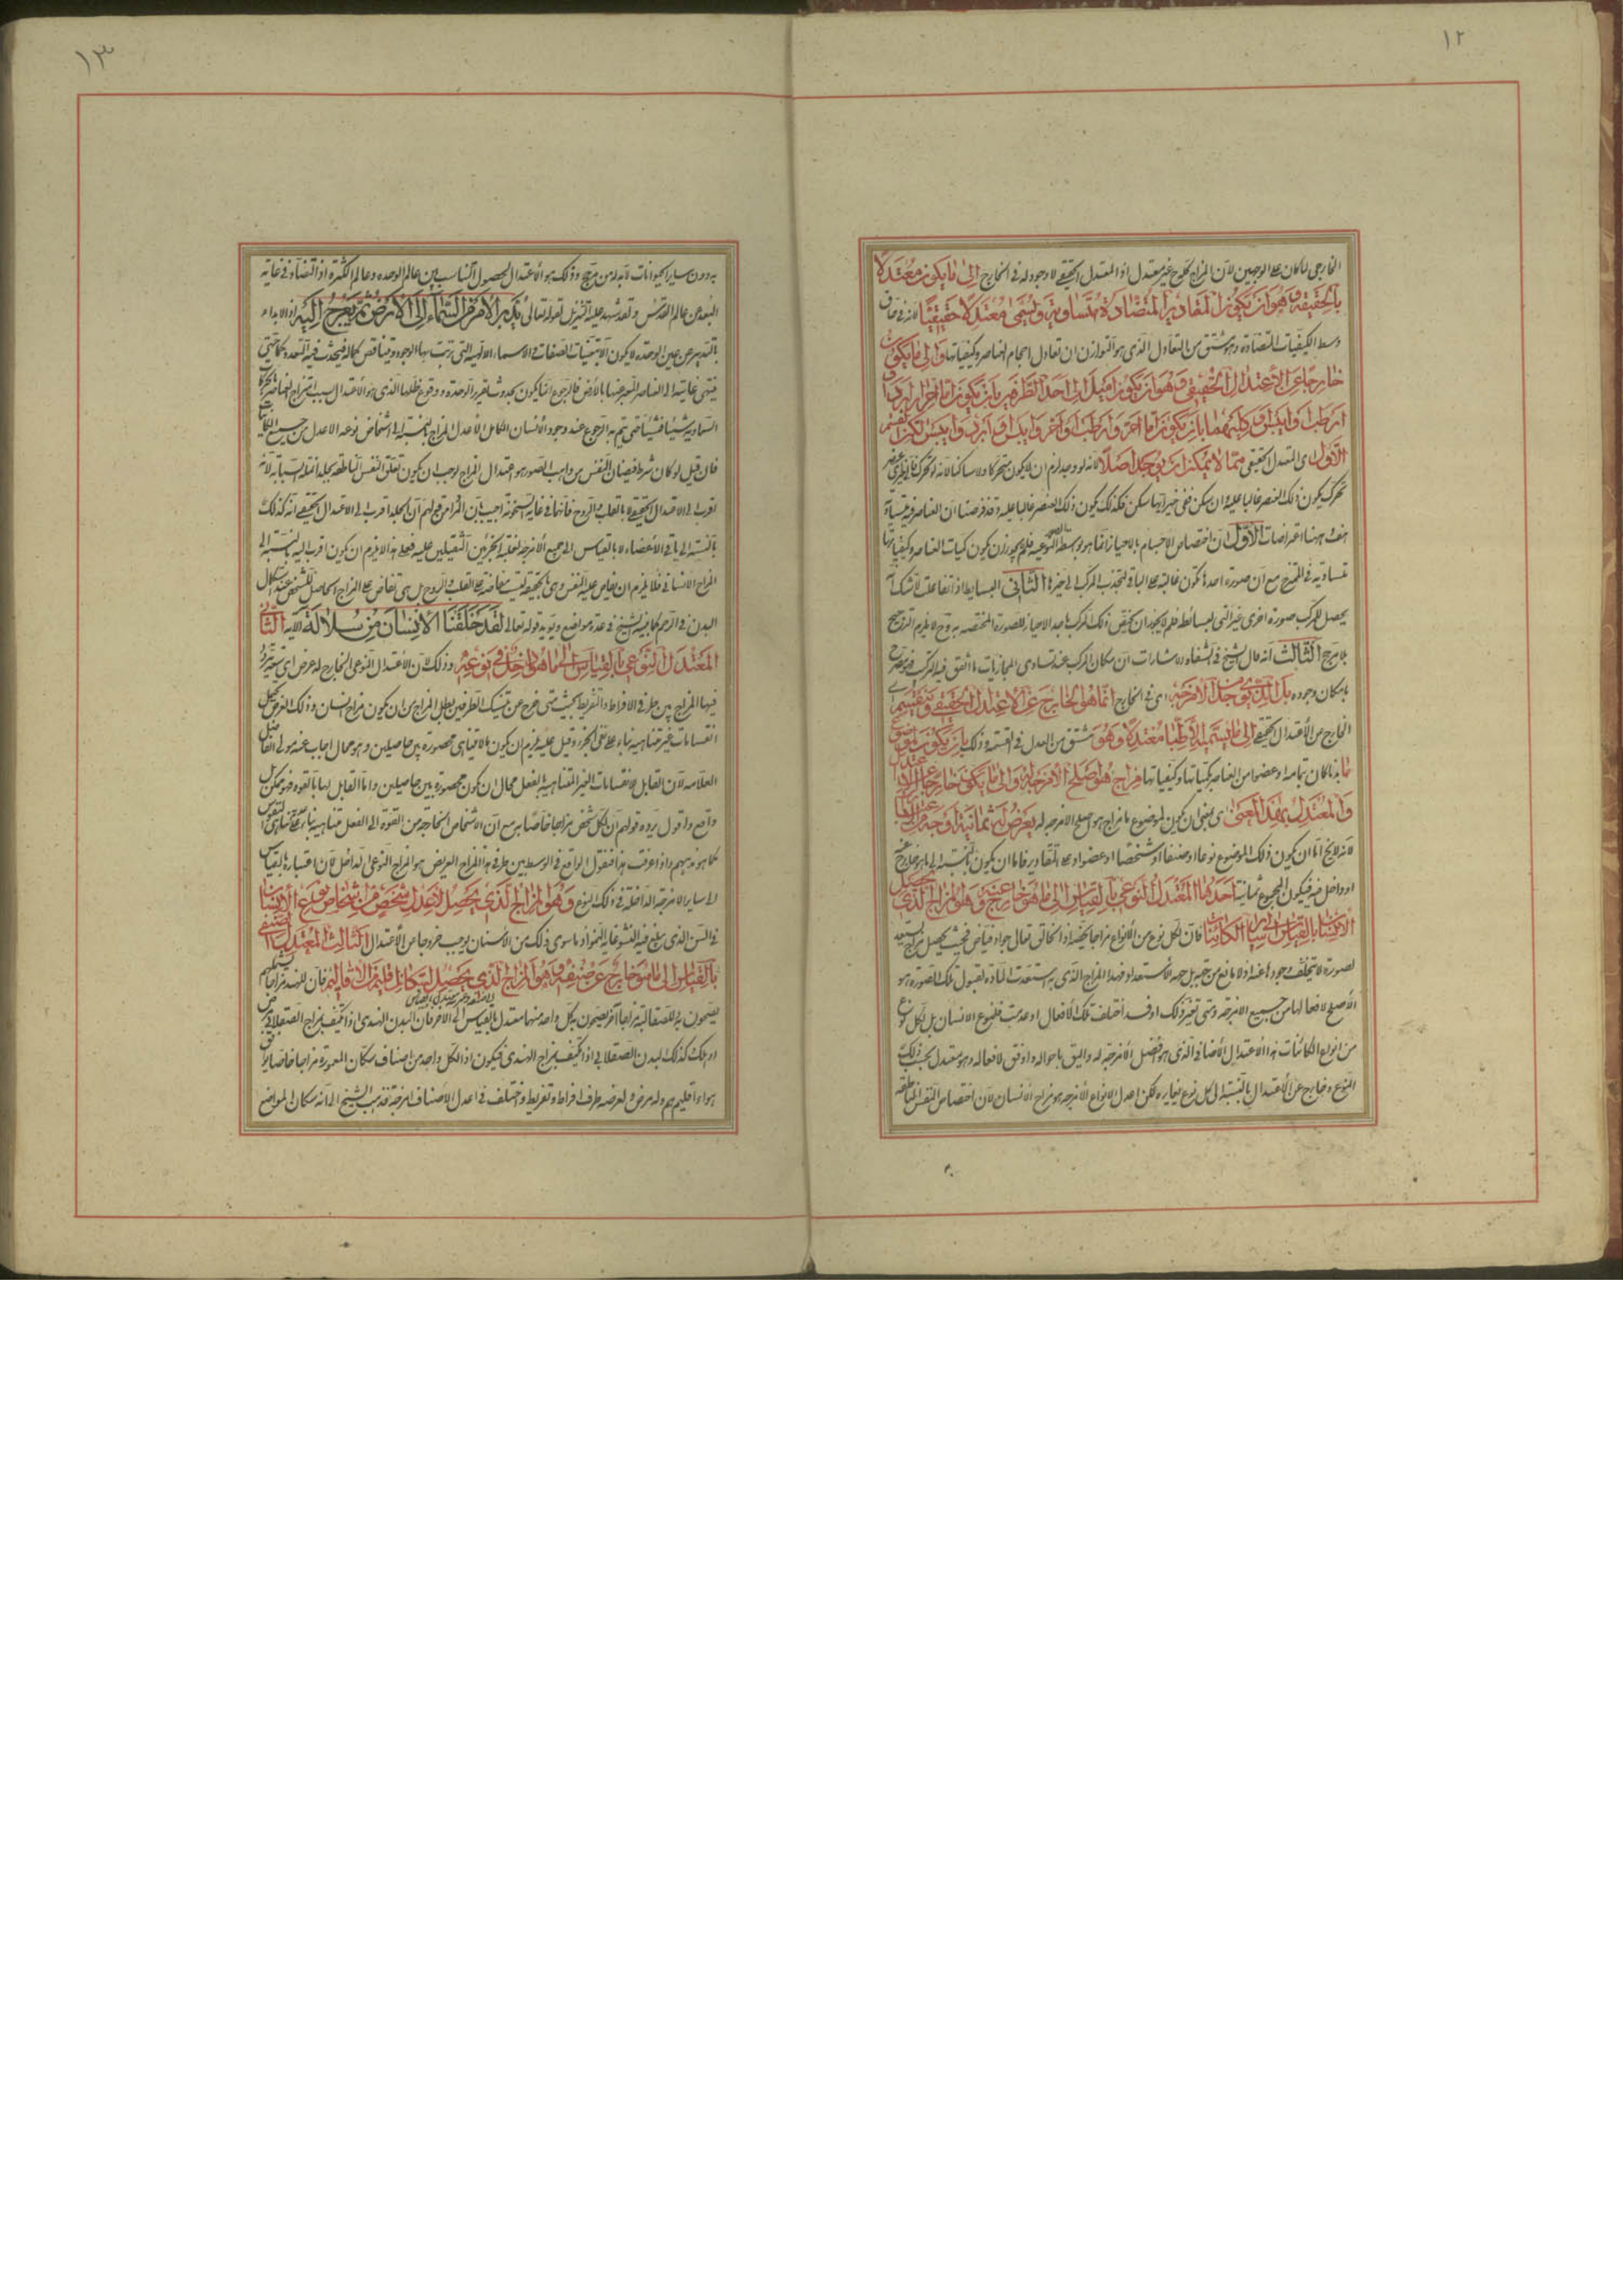 ١٢
الخارجى لما كان على الوجهين لان المزاج كلها غير معتدل اذ المعتدل الحقيقى لا وجود له فى الخارج الى ما يكون معتدلا
بالحقيقة وهو ان تكون المقادير المتضادة متساوية ويسمى معتدلا حقيقيا لانه فى حاق
وسط الكيفيات المتضادة وهو مشتق من التعادل الذى هو التوازن ان تعادل اجسام العناصر وكيفياتها والى ما يكون
خارجا عن الاعتدال الحقيقى وهو ان يكون اميل الى احد الطرفين بان يكون اما احر او ابرد او
ارطب او ايبس او كليهما بان يكون اما احر وارطب او احر وايبس او ابرد وايبس لكن القسم
الاول اى المعتدل الحقيقى مما لا يمكن ان يوجد اصلا لانه لو وجد لزم ان لا يكون متحركا ولا ساكنا لانه لو تحرك فالى حيز اى عنصر
تحرك يكون ذلك العنصر غالبا عليه وان سكن ففى حيز ايها سكن فكذلك يكون ذلك العنصر غالبا عليه وقد فرضنا ان العناصر فيه متساوية
هف وههنا اعتراضات الاول ان اختصاص الاجسام بالاحياز انما هو بواسطة الصور النوعية فلم لا يجوز ان يكون كميات العناصر وكيفياتها
متساوية فى الممتزج مع ان صورة احدها تكون غالبة على الباقى فتجذب المركب الى حيزها الثانى البسايط اذا تفاعلت لا شك ان
يحصل للمركب صورة اخرى غير التى لبسائطه فلم لا يجوز ان يختص ذلك المركب باحد الاحياز للصورة المختصة به وح لا يلزم الترجيح
بلا مرجح الثالث انه قال الشيخ فى الشفاء والاشارات ان مكان المركب عند تساوى المجازبات ما اتفق فيه المركب فهو تصريح
بامكان وجوده بل الذى يوجد من الامزجة اى فى الخارج انما هو الخارج عن الاعتدال الحقيقى وينقسم اى
الخارج من الاعتدال الحقيقى الى ما يسميه الاطباء معتدلا وهو مشتق من العدل فى القسمة وذلك بان يكون لموضوع
ما بدنا كان بتمامه او عضوا من العناصر بكمياتها وكيفياتها مزاج هو اصلح الامزجة له والى ما يكون خارجا عن الاعتدال
والمعتدل بهذا المعنى اى بمعنى ان يكون لموضوع ما مزاج هو اصلح الامزجة له يعرض له ثمانية اوجه من الاعتبارات
لانه لا يخ اما ان يكون ذلك الموضوع نوعا او صنفا او شخصا او عضوا وعلى التقادير فاما ان يكون بالنسبة الى ما هو خارج عنه
او داخل فيه فيكون المجموع ثمانية احدها المعتدل النوعى بالقياس الى ما هو خارج عنه وهو المزاج الذى يحصل
للانسان بالقياس الى سائر الكائنات فان لكل نوع من الانواع مزاجا يخصه اذ الخالق تعالى جواد فياض فبحيث يحصل مزاج يستعد
لصورة لا يتخلف وجودها عنه اذ لا مانع من جهته بل جهة الاستعداد فهذا المزاج الذى به استعدت المادة لقبول تلك الصورة هو
الاصلح لافعالها من جميع الامزجة ومتى تغير ذلك او فسد اختلفت تلك الافعال او عدمت فلنوع الانسان بل لكل نوع
من انواع الكائنات هذا الاعتدال الاضافى الذى هو افضل الامزجة له واليق باحواله واوفق لافعاله وهو معتدل بحسب ذلك
النوع وخارج عن الاعتدال بالنسبة الى كل نوع يغايره لكن اعدل الانواع الامزجة هو مزاج الانسان لان اختصاص النفس الناطقة
١٣
به دون ساير الحيوانات لابد له من مرجح وذلك هو الاعتدال ليحصل التناسب بين عالم الوحدة وعالم الكثرة اذ التضاد فى غاية
البعد من عالم القدس ولقد شهد عليه التنزيل لقوله تعالى يدبر الامر من السماء الى الارض ثم يعرج اليه اذ الابداء
بالتدبير عن عين الوحدة لا يكون الا بتعينات الصفات فى الاسماء الالهية التى ترتب بها الوجود وتناقص كماله فيحدث فيه التعدد حتى
ينتهى غايته الى العناصر المعبر عنها بالارض فالرجوع انما يكون بحدوث ما قدر الوحدة ووقوع ظلها الذى هو الاعتدال بسبب امتزاج العناصر
السماوية شيئا فشيئا حتى يتم به الرجوع عند وجود الانسان الكامل الاعدل المزاج بالنسبة الى اشخاص نوعه الاعدل من جميع الكاينات
فان قيل لو كان شرط فيضان النفس من واهب الصور هو اعتدال المزاج لوجب ان يكون تعلق النفس الناطقة بجلد انملة السبابة لانه
اقرب الى الاعتدال الحقيقى لا بالقلب والروح فانهما فى غاية السخونة اجيب بان المراد من قولهم ان الجلد اقرب الى الاعتدال الحقيقى انه كذلك
بالنسبة الى باقى الاعضاء لا بالقياس الى جميع الامزجة لغلبة الجزئين الثقيلين عليه فعلى هذا لا يلزم ان يكون اقرب اليه بالنسبة الى
المزاج الانسانى فلا يلزم ان يفاض عليه النفس وهى بالحقيقة ليست مفاضة على القلب والروح بل هى تفاض على المزاج الحاصل للشخص عند استكمال
البدن فى الرحم كما بينه الشيخ فى عدة مواضع ويويد قوله تعالى لقد خلقنا الانسان من سلالة الاية الثانى
المعتدل النوعى بالقياس الى ما هو داخل فى نوعه وذلك لان الاعتدال النوعى الخارج له عرض اى سعة يتردد
فيها المزاج بين طرفى الافراط والتفريط بحيث متى خرج عن تينك الطرفين بطل المزاج من ان يكون مزاج انسان وذلك العرض يحتمل
انقسامات غير متناهية بناء على نفى الجزء وقيل عليه يلزم ان يكون ما لا يتناهى محصورة بين حاصرين وهو محال اجاب عنه مولى الفاضل
العلامه لان القابل لانقسامات الغير المتناهية بالفعل محال ان يكون محصورة بين حاصرين واما القابل لها بالقوة فهو ممكن بل
واقع واقول يرده قولهم ان لكل شخص مزاجا خاصا به مع ان الاشخاص الخارجة من القوة الى الفعل متناهية بناء على تناهى النفوس
كما هو مذهبهم واذا عرفت هذا فنقول الواقع فى الوسط بين طرفى هذا المزاج العريض هو المزاج النوعى الداخل لان اعتباره بالقياس
الى ساير الامزجة الداخلة فى ذلك النوع وهو المزاج الذى يحصل لاعدل شخص من اشخاص نوع الانسان
فى السن الذى يبلغ فيه النشو غاية النمو اذ ما سوى ذلك من الاسنان يوجب خروجا من الاعتدال الثالث المعتدل الصنفى
بالقياس الى ما هو خارج عن صنفه وهو المزاج الذى يحصل لسكان اقليم من الاقاليم فان للهند مزاجا يشملهم
يصحون به وللصقالبة مزاجا اخر يصحون به كل واحد منهما معتدل بالقياس الى الاخر فان البدن الهندى اذا تكيف بمزاج الصقلابى مرض
او هلك كذلك لبدن الصقلابى اذا تكيف بمزاج الهندى فيكون اذا لكل واحد من اصناف سكان المعمورة مزاجا خاصا يوافق
هواء اقليمهم وله عرض ولعرضه طرفا افراط وتفريط واختلف فى اعدل الاصناف امزجة فذهب الشيخ الى انه سكان المواضع